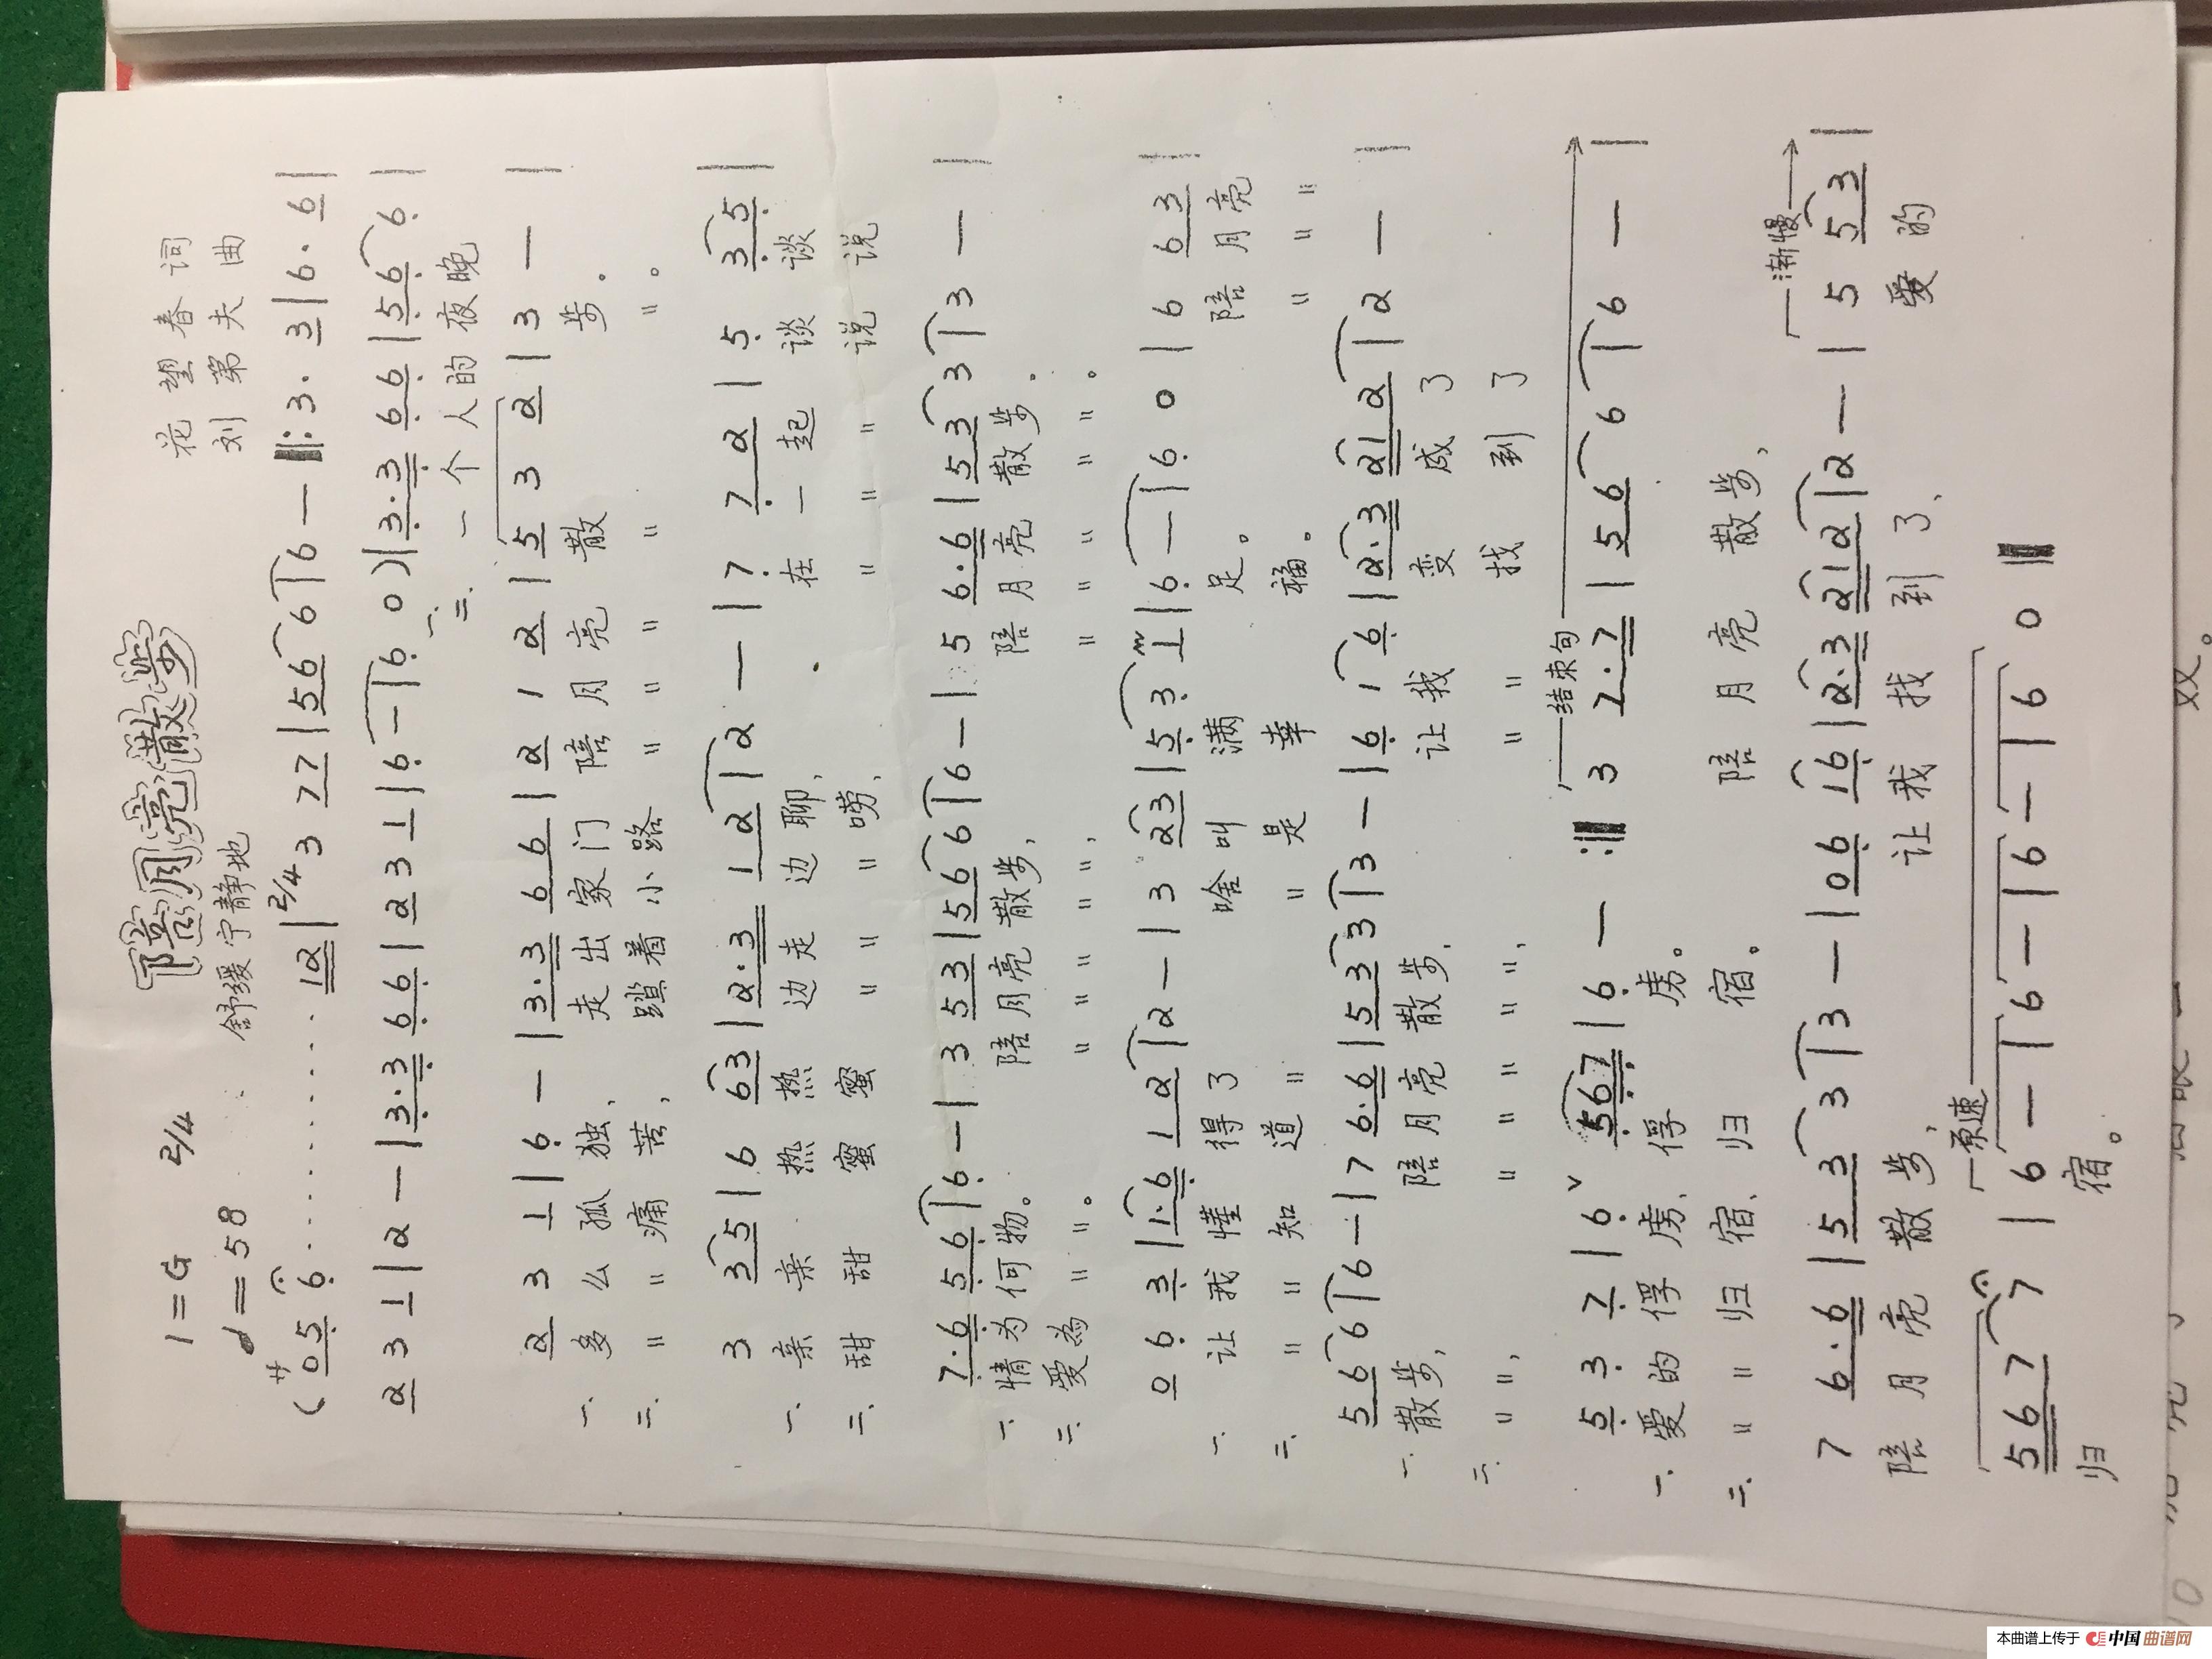 陪月亮散步
1=G 2/4
♩=58 舒缓宁静地
花望春 词
刘第夫 曲
(サ 0 5 6 ········ 1 2 | 2/4 3 7 7 | 5 6 6 | 6 — ‖: 3 · 3 | 6 · 6 |
2 3 1 | 2 — | 3·3 6 6 | 2 3 1 | 6 — | 6 0 ) | 3·3 6 6 | 5 6 6 |
一、
二、 一个人的夜晚
2 3 1 | 6 — | 3·3 6 6 | 2 1 2 | 5 3 2 | 3 — |
一、多么孤独, 走出家门 陪月亮散步。
二、〃〃痛苦, 踏着小路 〃〃〃〃〃。
3 3 5 | 6 6 3 | 2·3 1 2 | 2 — | 7 7 2 | 5 3 5 |
一、亲亲热热 边走边聊, 在一起谈谈
二、甜甜蜜蜜 〃〃〃唠, 〃〃〃说说
7·6 5 6 | 6 — | 3 5 3 | 5 6 6 | 6 — | 5 6·6 | 5 3 3 | 3 — |
一、情为何物。 陪月亮散步, 陪月亮散步.
二、爱為〃〃。 〃〃〃〃〃, 〃〃〃〃〃。
0 6 3 | 1·6 1 2 | 2 — | 3 2 3 | 5 3 1 | 6 — | 6 0 | 6 6 3 |
一、让我懂得了 啥叫满足。 陪月亮
二、〃〃知道〃 〃是幸福。 〃〃〃
5 6 6 | 6 — | 7 6·6 | 5 3 3 | 3 — | 6 1 6 | 2·3 2 1 2 | 2 — |
一、散步, 陪月亮散步, 让我变成了
二、〃〃, 〃〃〃〃〃, 〃〃找到了
结束句
5 3 7 | 6 ∨ 5 6 7 | 6 — :‖ 3 7·7 | 5 6 6 | 6 — |
一、爱的俘虏、俘虏。
二、〃〃归宿、归宿。 陪月亮散步,
渐慢
7 6·6 | 5 3 3 | 3 — | 0 6 1 6 | 2·3 2 1 2 | 2 — | 5 5 3 |
陪月亮散步, 让我找到了、爱的
原速
5 6 7 7 | 6 — | 6 — | 6 — | 6 0 ‖
归宿。
奴。
本曲谱上传于 中国曲谱网